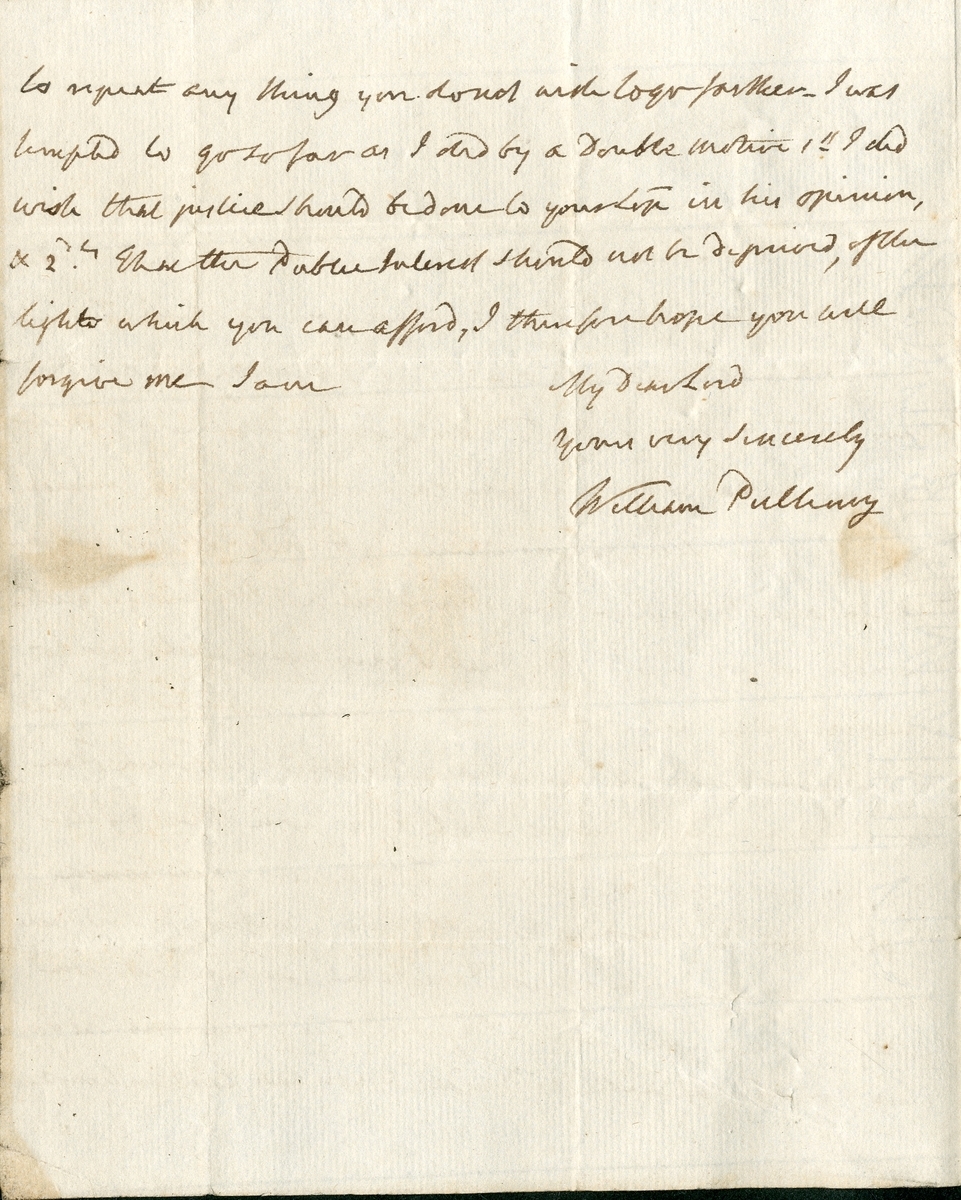 to repeat any thing you do not wish to go farther – I was
tempted to go so far as I did by a Double motive 1st I did
wish that justice should be done to your Lop in his opinion,
& 2dly that the Public Interest should not be deprived, of the
lights which you can afford, I therefore hope you will
forgive me I am My Dear Lord
Yours very sincerely
William Pulteney